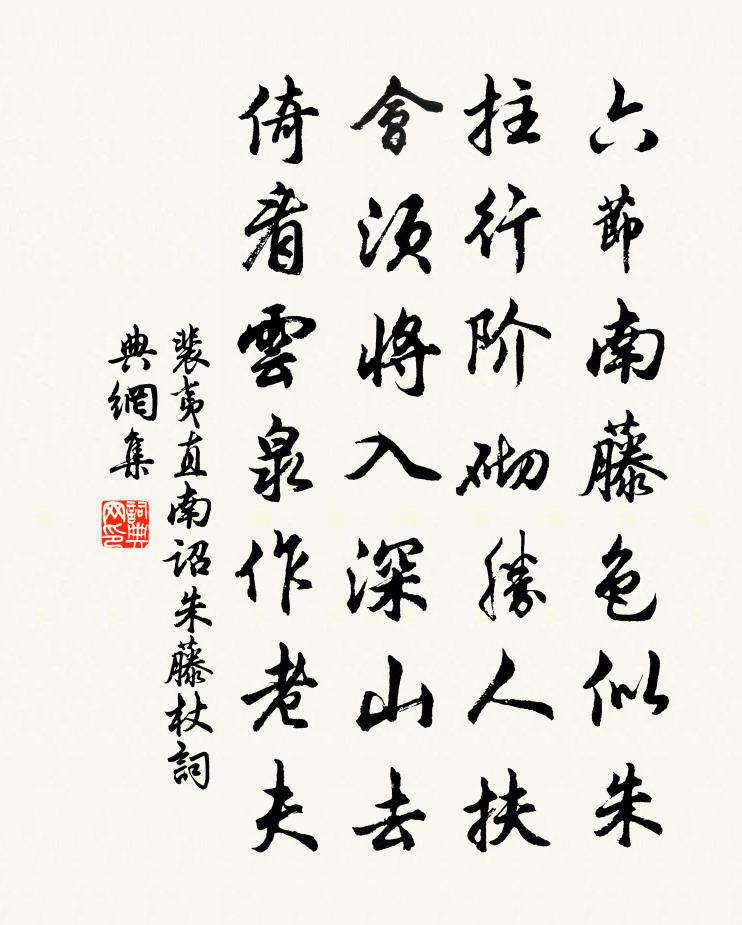 六節南藤色似朱
拄行阶砌勝人扶
會須將入深山去
倚看雲泉作老夫
裴夷直南诏朱藤杖詞
典網集
詞典网印